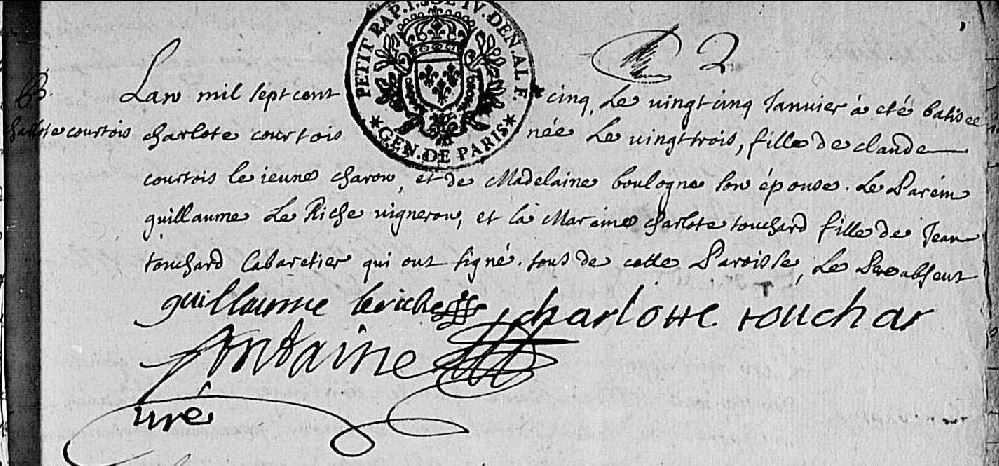 2
B
charlote courtois
PETIT PAP. 1. SOL IV. DEN. AL F.
GEN. DE PARIS
Lan mil sept cent cinq, Le vingt cinq Janvier à eté batisee
charlote courtois née Le vingt trois, fille de claude
courtois le jeune charon, et de Madelaine boulogne son épouse. Le Parein
guillaume Le Riche vigneron, et la Mareine charlote touchard fille de Jean
touchard Cabaretier qui ont signé. tous de cette Paroisse, Le Pere absent
guillaume leriche charlotte touchar
fontaine
curé